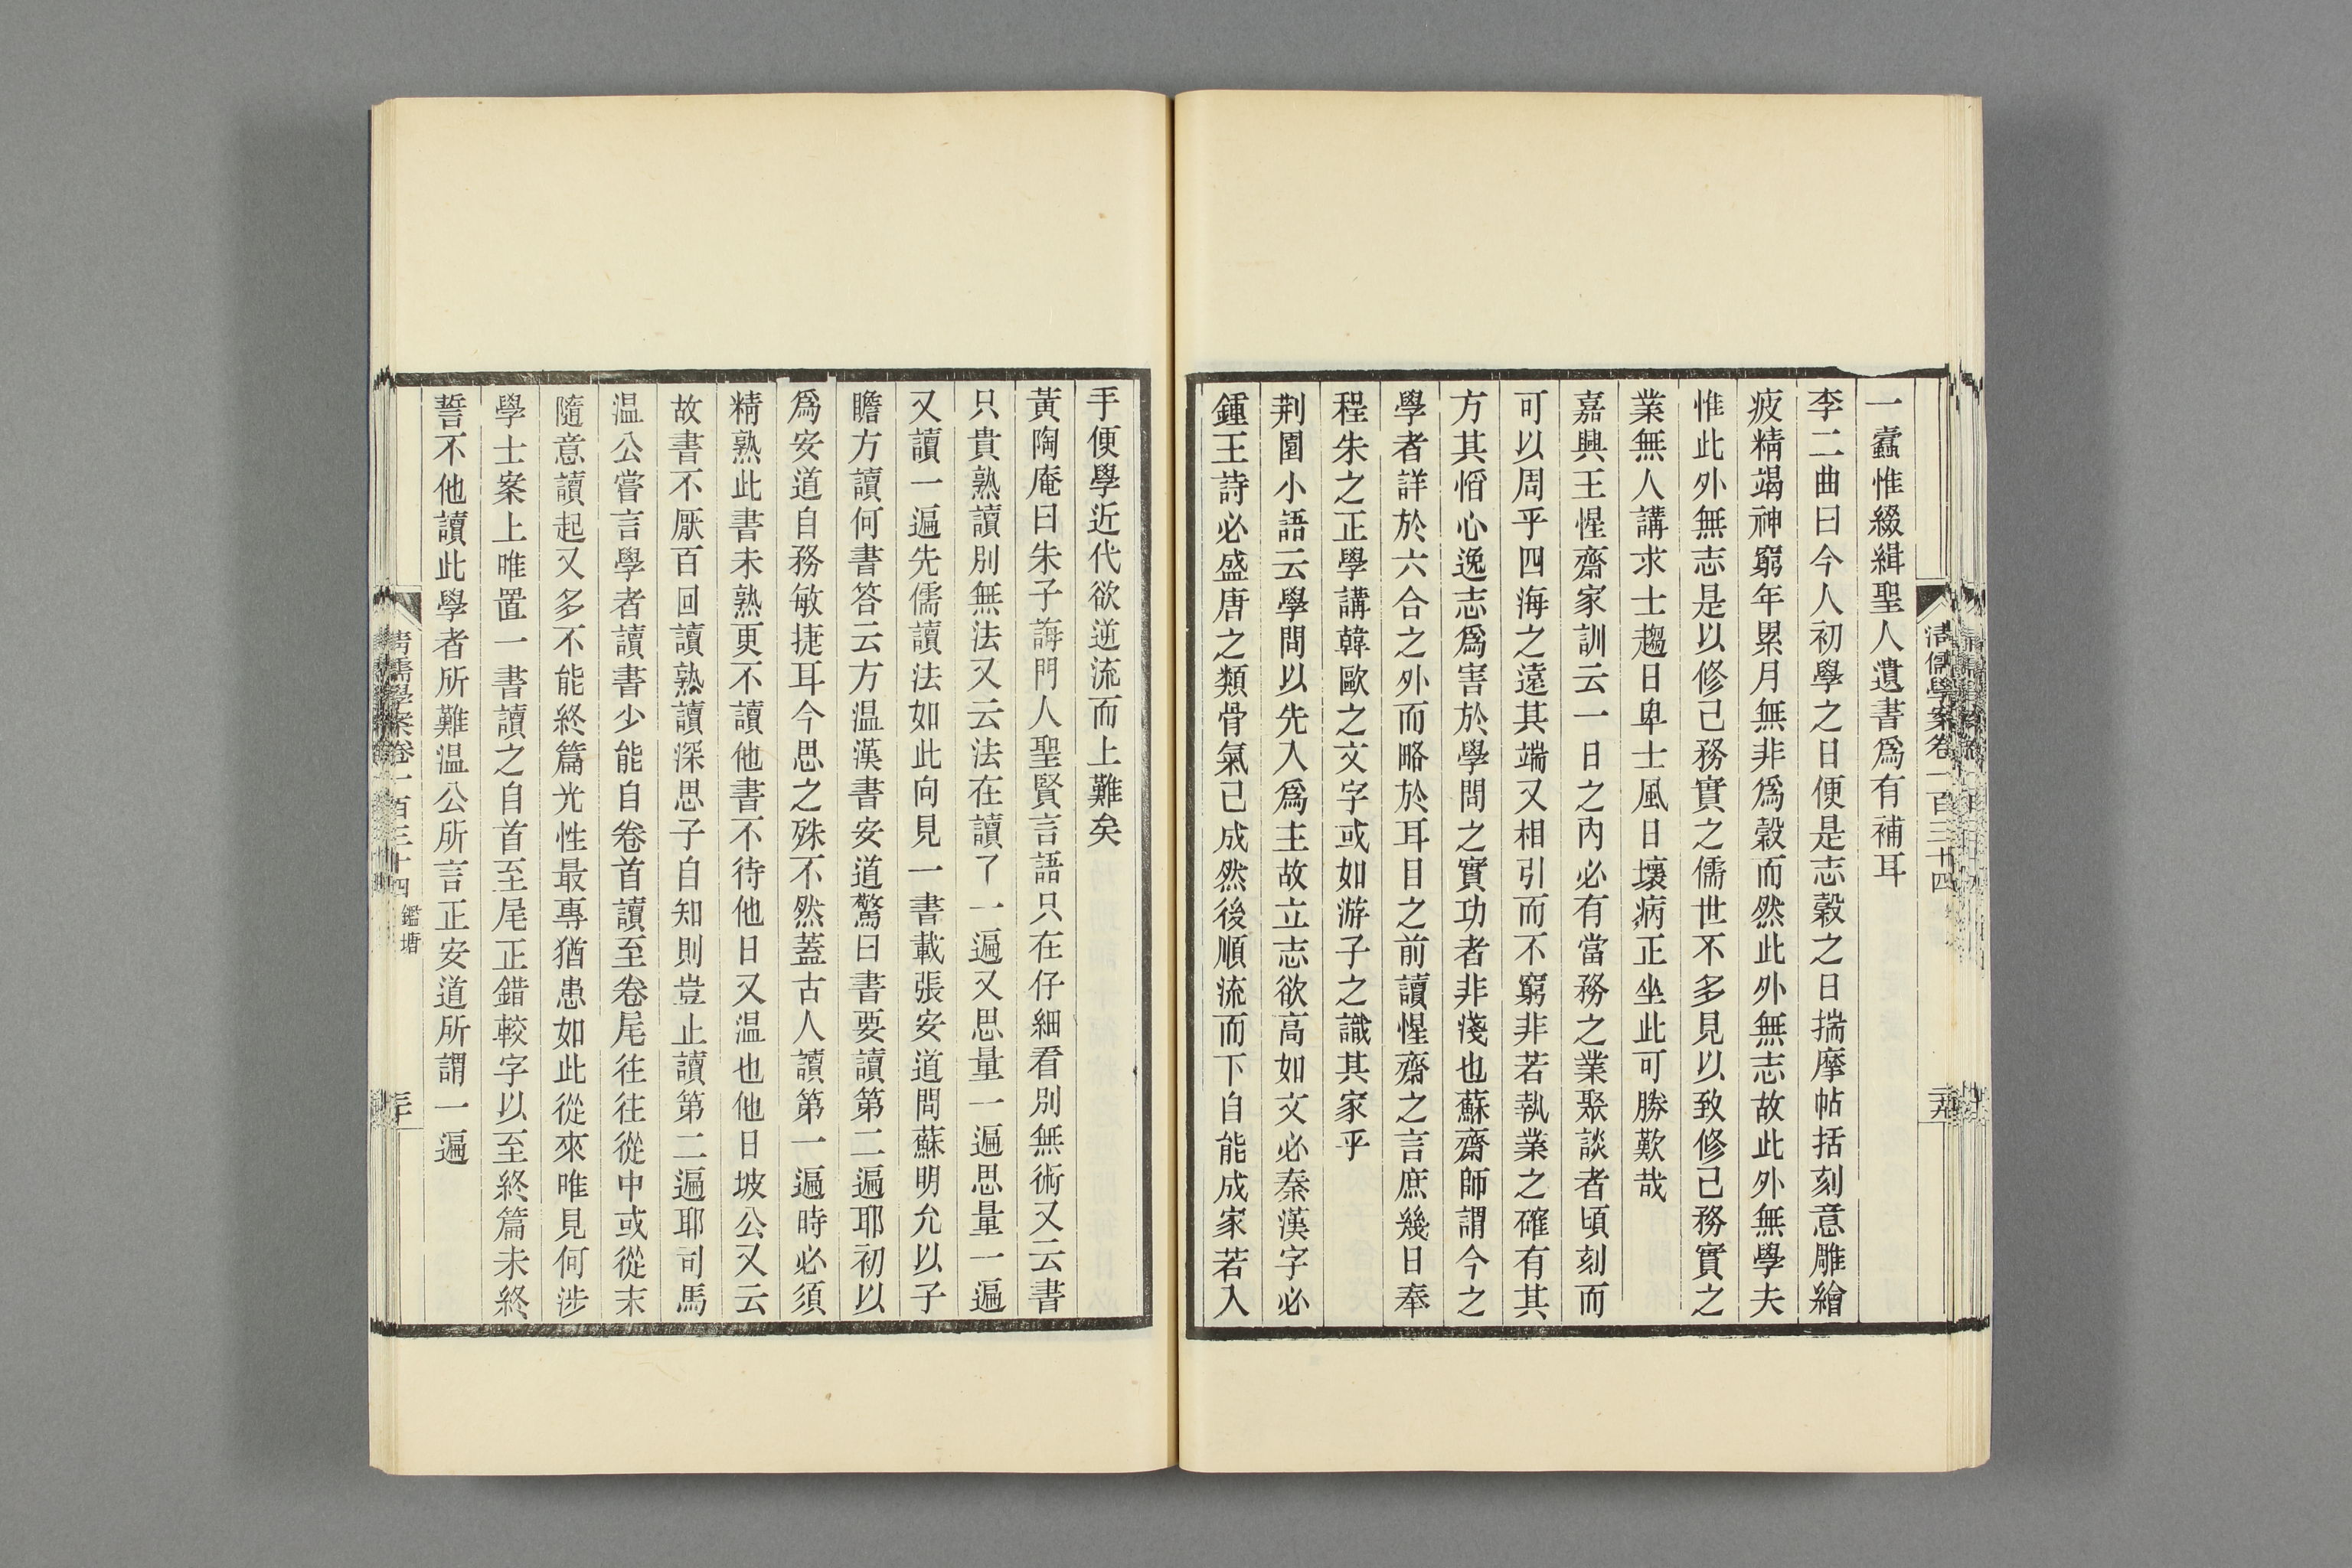 一蠹惟綴緝聖人遺書爲有補耳
李二曲曰今人初學之日便是志穀之日揣摩帖括刻意雕繪
疲精竭神窮年累月無非爲穀而然此外無志故此外無學夫
惟此外無志是以修己務實之儒世不多見以致修己務實之
業無人講求士趨日卑士風日壞病正坐此可勝歎哉
嘉興王惺齋家訓云一日之內必有當務之業聚談者頃刻而
可以周乎四海之遠其端又相引而不窮非若執業之確有其
方其慆心逸志爲害於學問之實功者非淺也蘇齋師謂今之
學者詳於六合之外而略於耳目之前讀惺齋之言庶幾日奉
程朱之正學講韓歐之文字或如游子之識其家乎
荆園小語云學問以先入爲主故立志欲高如文必秦漢字必
鍾王詩必盛唐之類骨氣已成然後順流而下自能成家若入
清儒學案卷一百三十四
手便學近代欲逆流而上難矣
黃陶庵曰朱子誨門人聖賢言語只在仔細看別無術又云書
只貴熟讀別無法又云法在讀了一遍又思量一遍思量一遍
又讀一遍先儒讀法如此向見一書載張安道問蘇明允以子
瞻方讀何書答云方温漢書安道驚曰書要讀第二遍耶初以
爲安道自務敏捷耳今思之殊不然蓋古人讀第一遍時必須
精熟此書未熟更不讀他書不待他日又温也他日坡公又云
故書不厭百回讀熟讀深思子自知則豈止讀第二遍耶司馬
温公嘗言學者讀書少能自卷首讀至卷尾往往從中或從末
隨意讀起又多不能終篇光性最專猶患如此從來唯見何涉
學士案上唯置一書讀之自首至尾正錯較字以至終篇未終
誓不他讀此學者所難温公所言正安道所謂一遍
清儒學案卷一百三十四 鑑塘